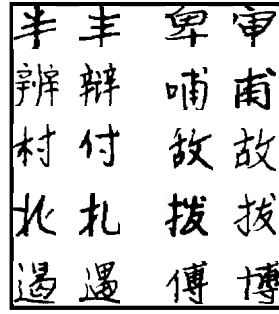 半 丰 卑 审
辨 辩 哺 甫
村 付 敌 故
北 扎 拨 拔
遏 遇 傅 博